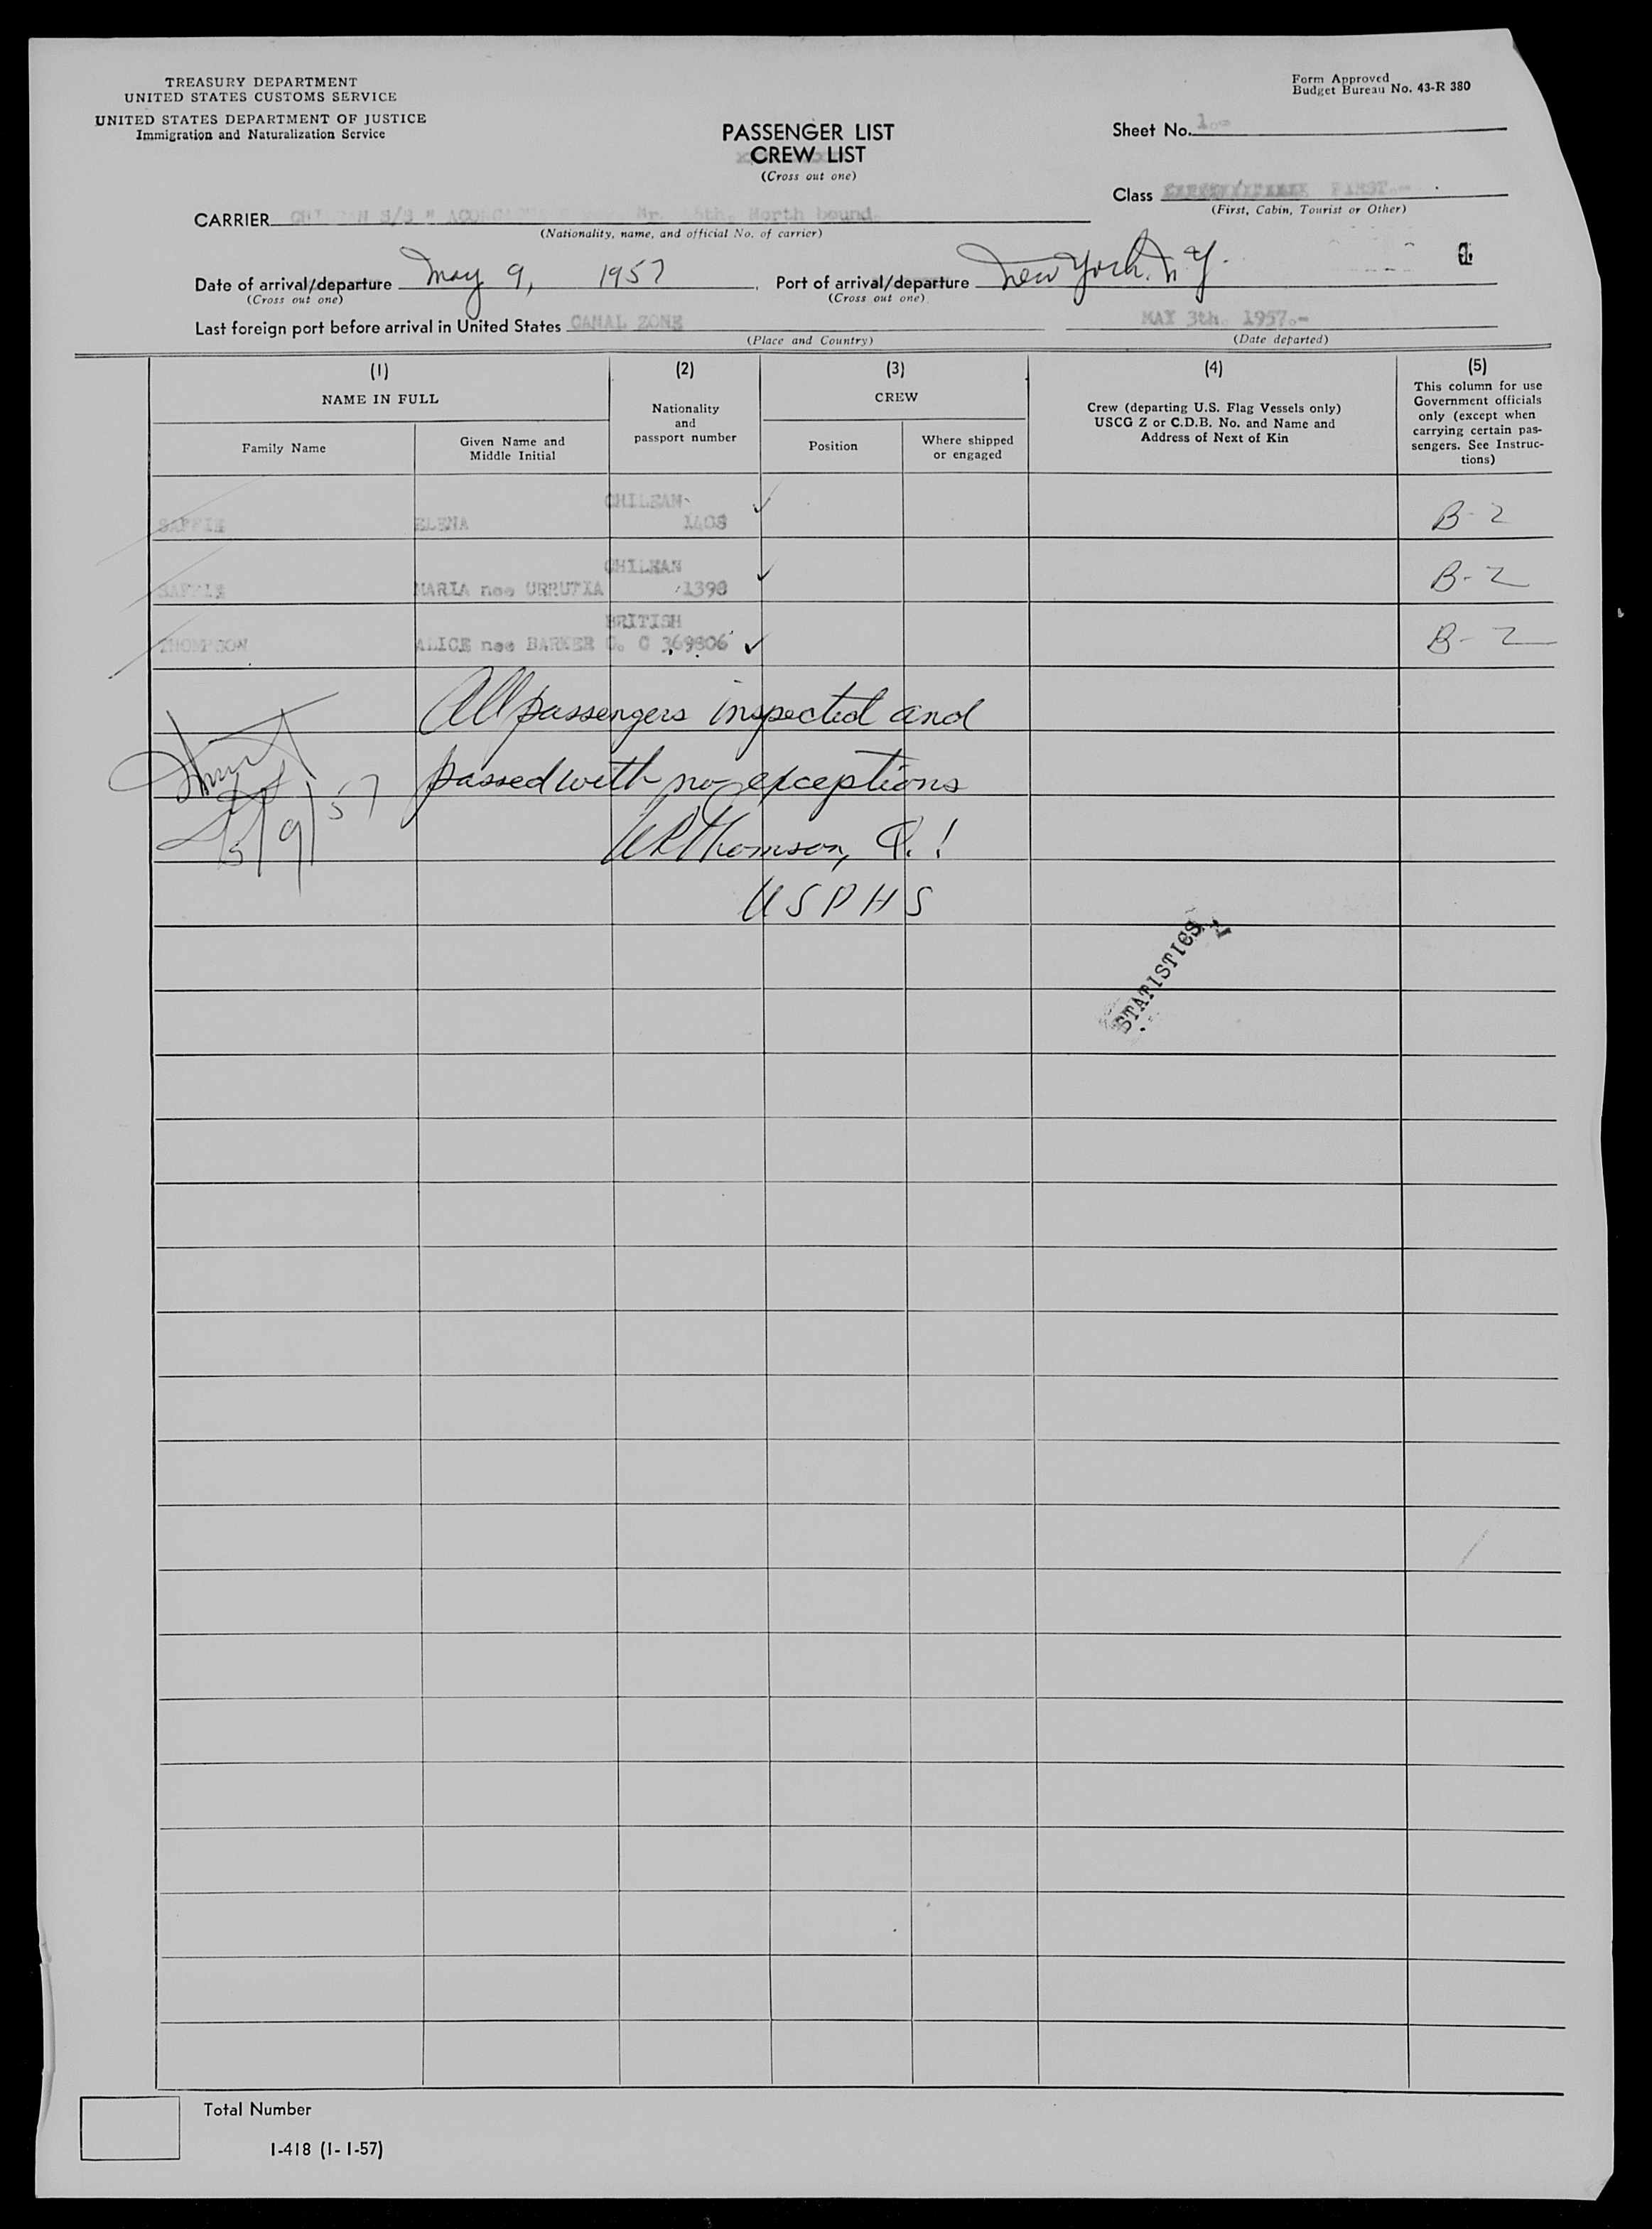 TREASURY DEPARTMENT
UNITED STATES CUSTOMS SERVICE
UNITED STATES DEPARTMENT OF JUSTICE
Immigration and Naturalization Service
Form Approved
Budget Bureau No. 43-R 380
PASSENGER LIST
CREW LIST
(Cross out one)
Sheet No. 1.-
Class FIRST.-
(First, Cabin, Tourist or Other)
CARRIER S/S " North bound
(Nationality, name, and official No. of carrier)
Date of arrival/departure May 9, 1957
(Cross out one)
Port of arrival/departure New York, N.Y.
(Cross out one)
1
Last foreign port before arrival in United States CANAL ZONE MAY 3th. 1957.-
(Place and Country) (Date departed)
(1) (2) (3) (4) (5)
NAME IN FULL
Family Name
Given Name and
Middle Initial
Nationality
and
passport number
CREW
Position
Where shipped
or engaged
Crew (departing U.S. Flag Vessels only)
USCG Z or C.D.B. No. and Name and
Address of Next of Kin
This column for use
Government officials
only (except when
carrying certain pas-
sengers. See Instruc-
tions)
CHILEAN
SAFFIE ELENA 1408 B-2
CHILEAN
SAFFIE MARIA nee URRUTIA 1398 B-2
BRITISH
THOMPSON ALICE nee BARKER C. C 369806 B-2
All passengers inspected and
passed with no exceptions
Thomson, Q.I
USPHS
5/9/57
STATISTICS
Total Number
I-418 (1-1-57)